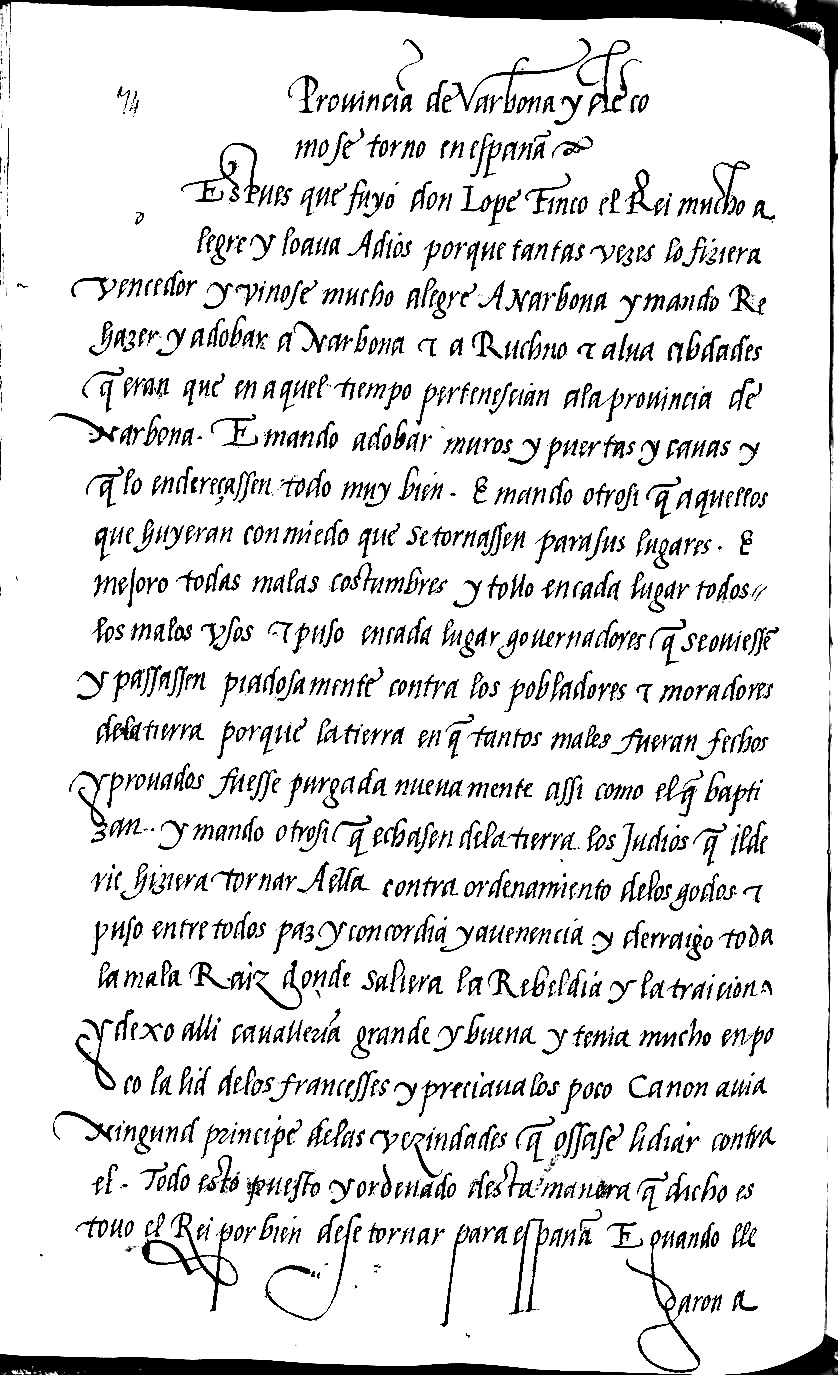 74
Prouincia de Narbona y de co
mo se torno en españa
Espues que fuyo don Lope Finco el Rei mucho a
D
legre y loaua Adios porque tantas vezes lo fiziera
vencedor y vinose mucho alegre A Narbona y mando Re
hazer y adobar a Narbona τ a Ruchno τ alua cibdades
q̃ eran que en aquel tiempo pertenescian ala prouincia de
Narbona. E mando adobar muros y puertas y cauas y
q̃ lo endereçassen todo muy bien. E mando otrosi q̃ aquellos
que huyeran con miedo que se tornassen para sus lugares. E
mejoro todas malas costumbres y tollo en cada lugar todos
los malos vsos τ puso en cada lugar gouernadores q̃ se ouiesse
y passassen piadosamente contra los pobladores τ moradores
dela tierra porque la tierra en q̃ tantos males fueran fechos
y prouados fuesse purgada nueua mente assi como el q̃ bapti
zan.. y mando otrosi q̃ echasen dela tierra los Judios q̃ ilde
ric hiziera tornar Aella contra ordenamiento delos godos τ
puso entre todos paz y concordia y auenencia y derraigo toda
la mala Raiz donde saliera la Rebeldia y la traicion
y dexo alli caualleria grande y buena y tenia mucho en po
co la lid delos francesses y preciaualos poco Ca non auia
Ningund principe delas vezindades q̃ ossase lidiar contra
el. Todo esto puesto y ordenado desta manera q̃ dicho es
touo el Rei por bien de se tornar para españa E quando lle
garon a